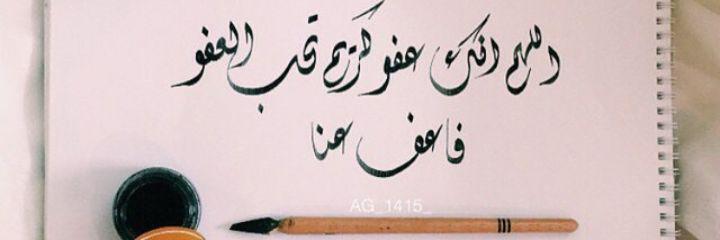 اللهم انك عفو كريم تحب العفو
فاعف عنا
AG_1415_